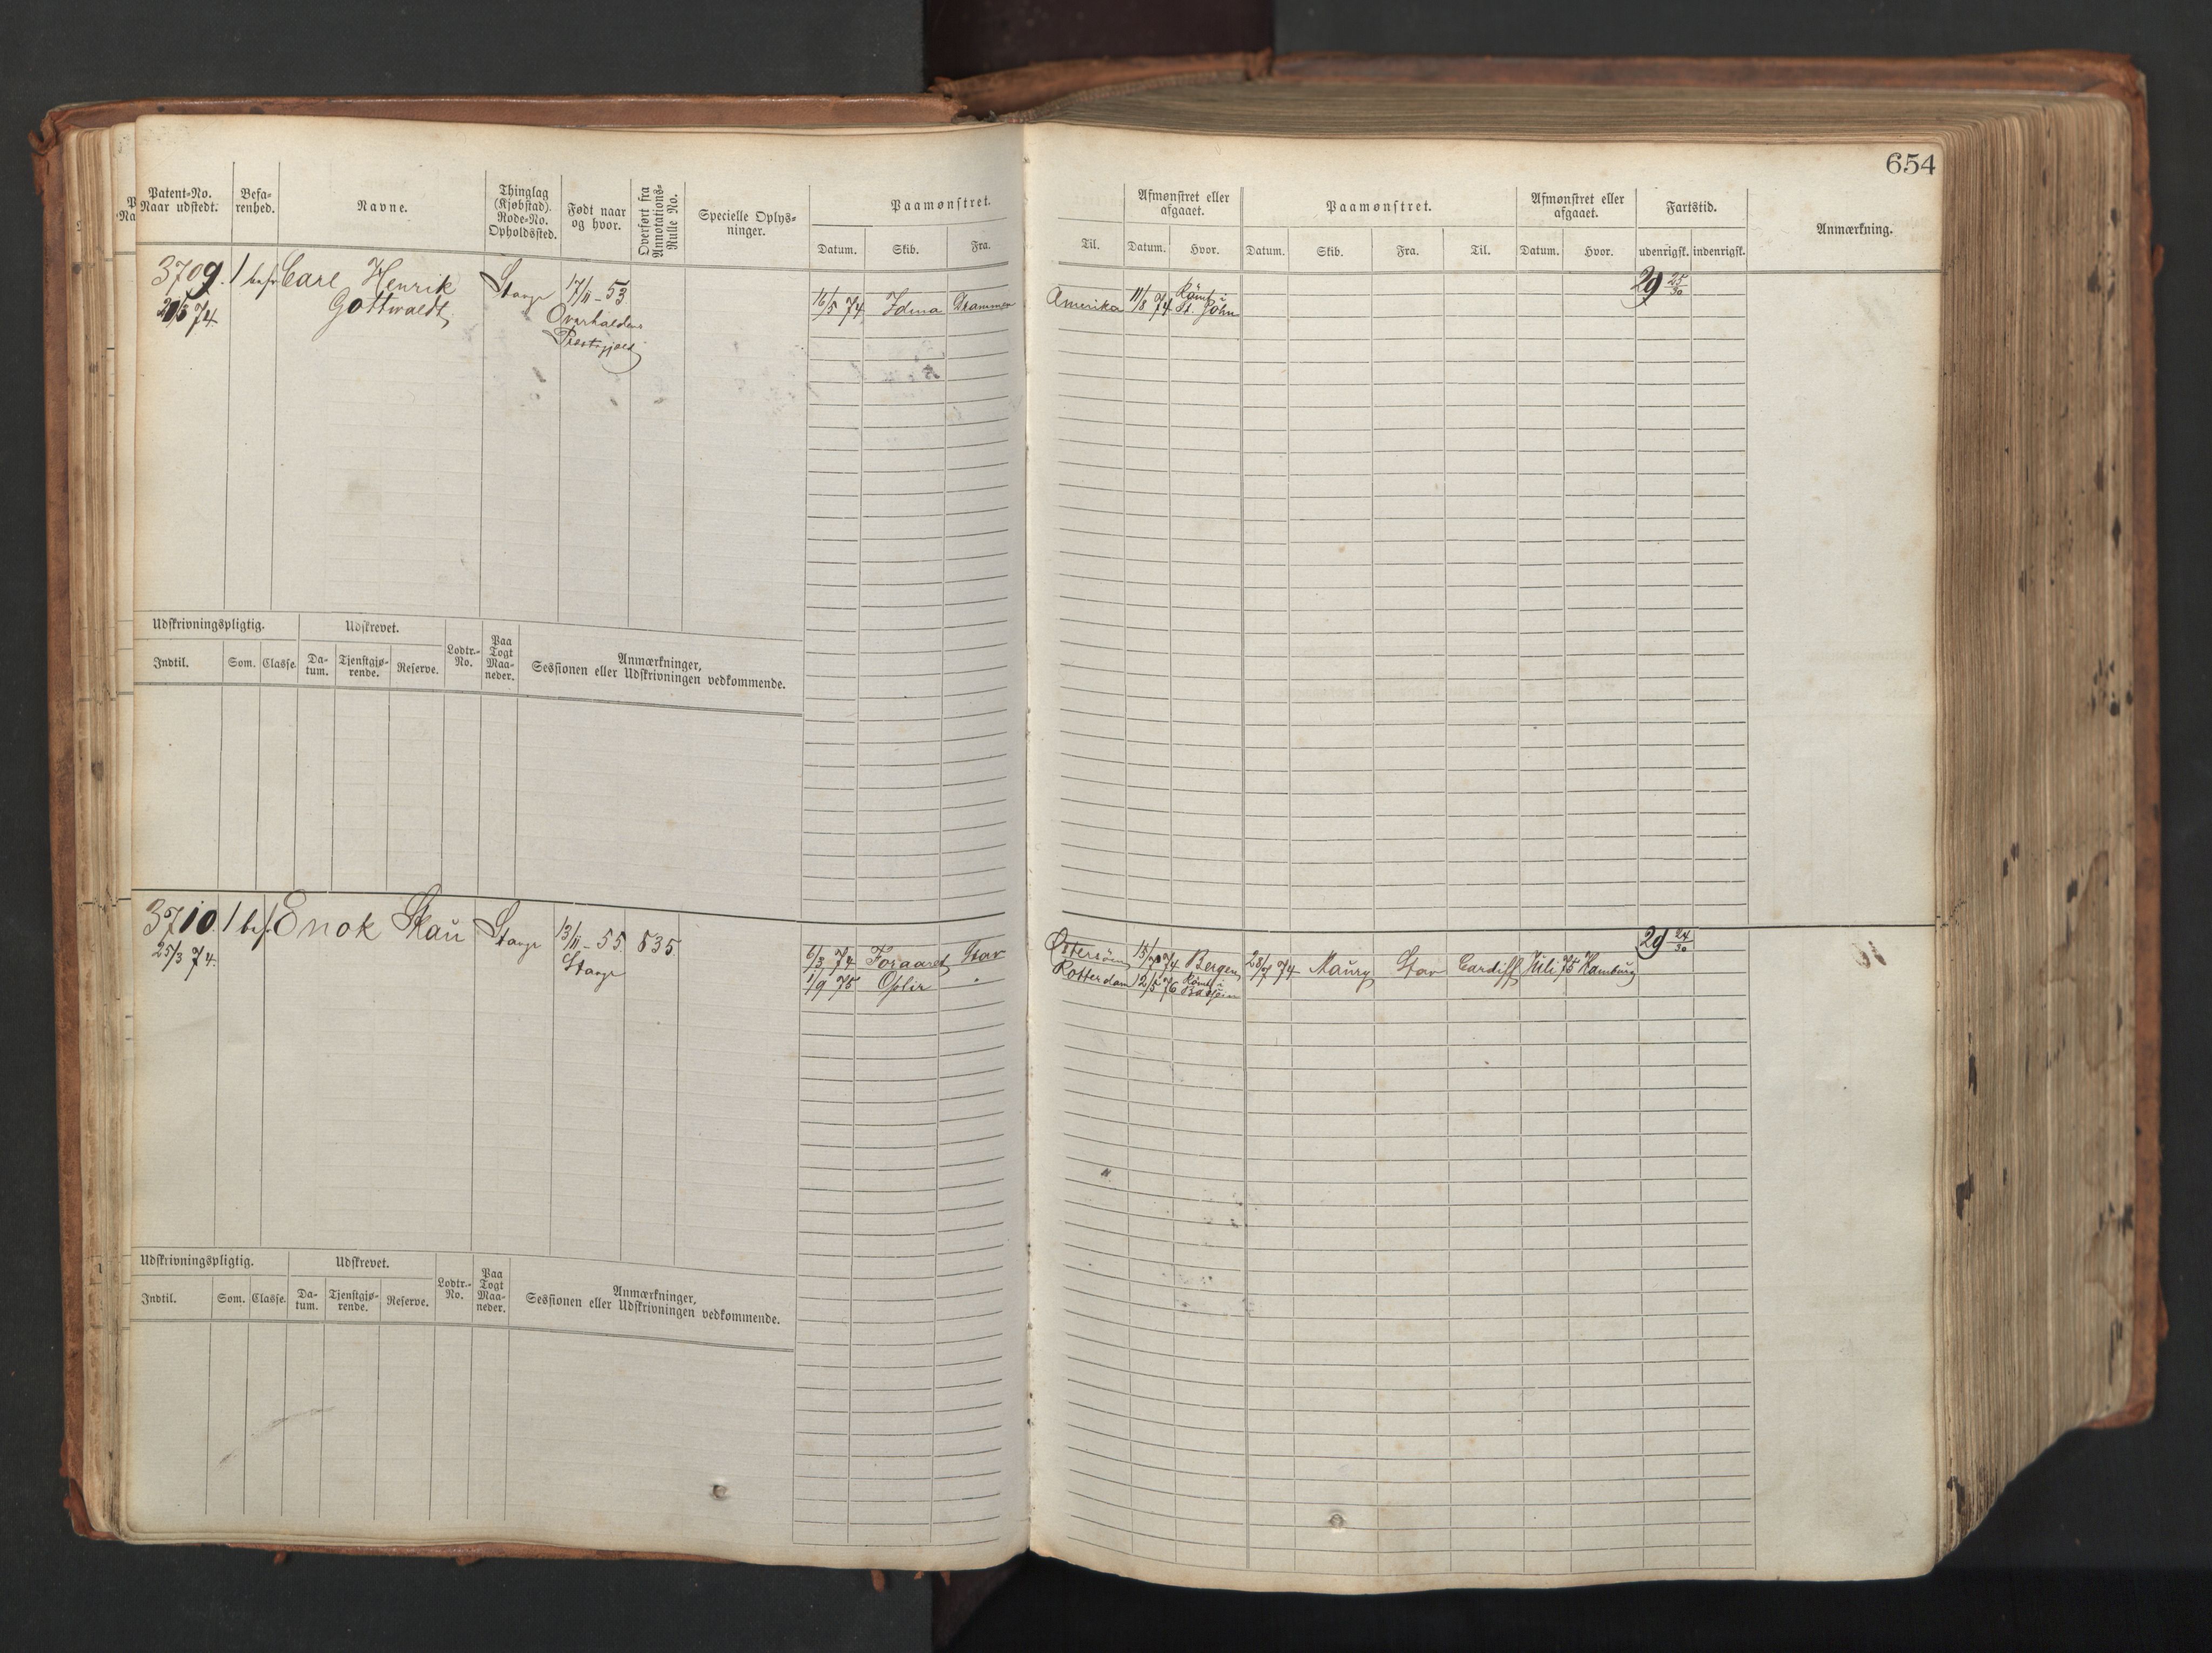 654
Patent-No. Naar udstedt.
Befarenhed.
Navne.
Thinglag (Kjøbstad). Rode-No. Opholdssted.
Født naar og hvor.
Overført fra Annotations-Rulle No.
Specielle Oplysninger.
Paamønstret.
Datum. Skib. Fra. Til.
Afmønstret eller afgaaet.
Datum. Hvor.
Paamønstret.
Datum. Skib. Fra. Til.
Afmønstret eller afgaaet.
Datum. Hvor.
Fartstid.
udenrigsk. indenrigsk.
Anmærkning.
3709. 1 bef. Carl Henrik Stavgr 17/11-53
Gottwaldt,
74
Overhaldens
Prestegjeld
16/5 74 Idma Drammen Amerika 11/8 74 Rømt i St. John
29 25/30
Udskrivningspligtig. Udskrevet. Lodtr.-No. Paa Togt Maaneder. Anmærkninger, Sessionen eller Udskrivningen vedkommende.
Indtil. Som. Classe. Datum. Tjenstgjørende. Reserve.
3710. 1 bef. Enok Skau Stavgr 13/11-55. 535.
25/3 74.
Stavgr
6/3 74 Foraaret Stav Østersøen 15/7 74 Bergen 28/7 74 Maury Stav Cardiff Juli 75 Hamburg
1/9 75 Ophir " Rotterdam 12/5 76 Rømt i
29 24/30
Udskrivningspligtig. Udskrevet. Lodtr.-No. Paa Togt Maaneder. Anmærkninger, Sessionen eller Udskrivningen vedkommende.
Indtil. Som. Classe. Datum. Tjenstgjørende. Reserve.